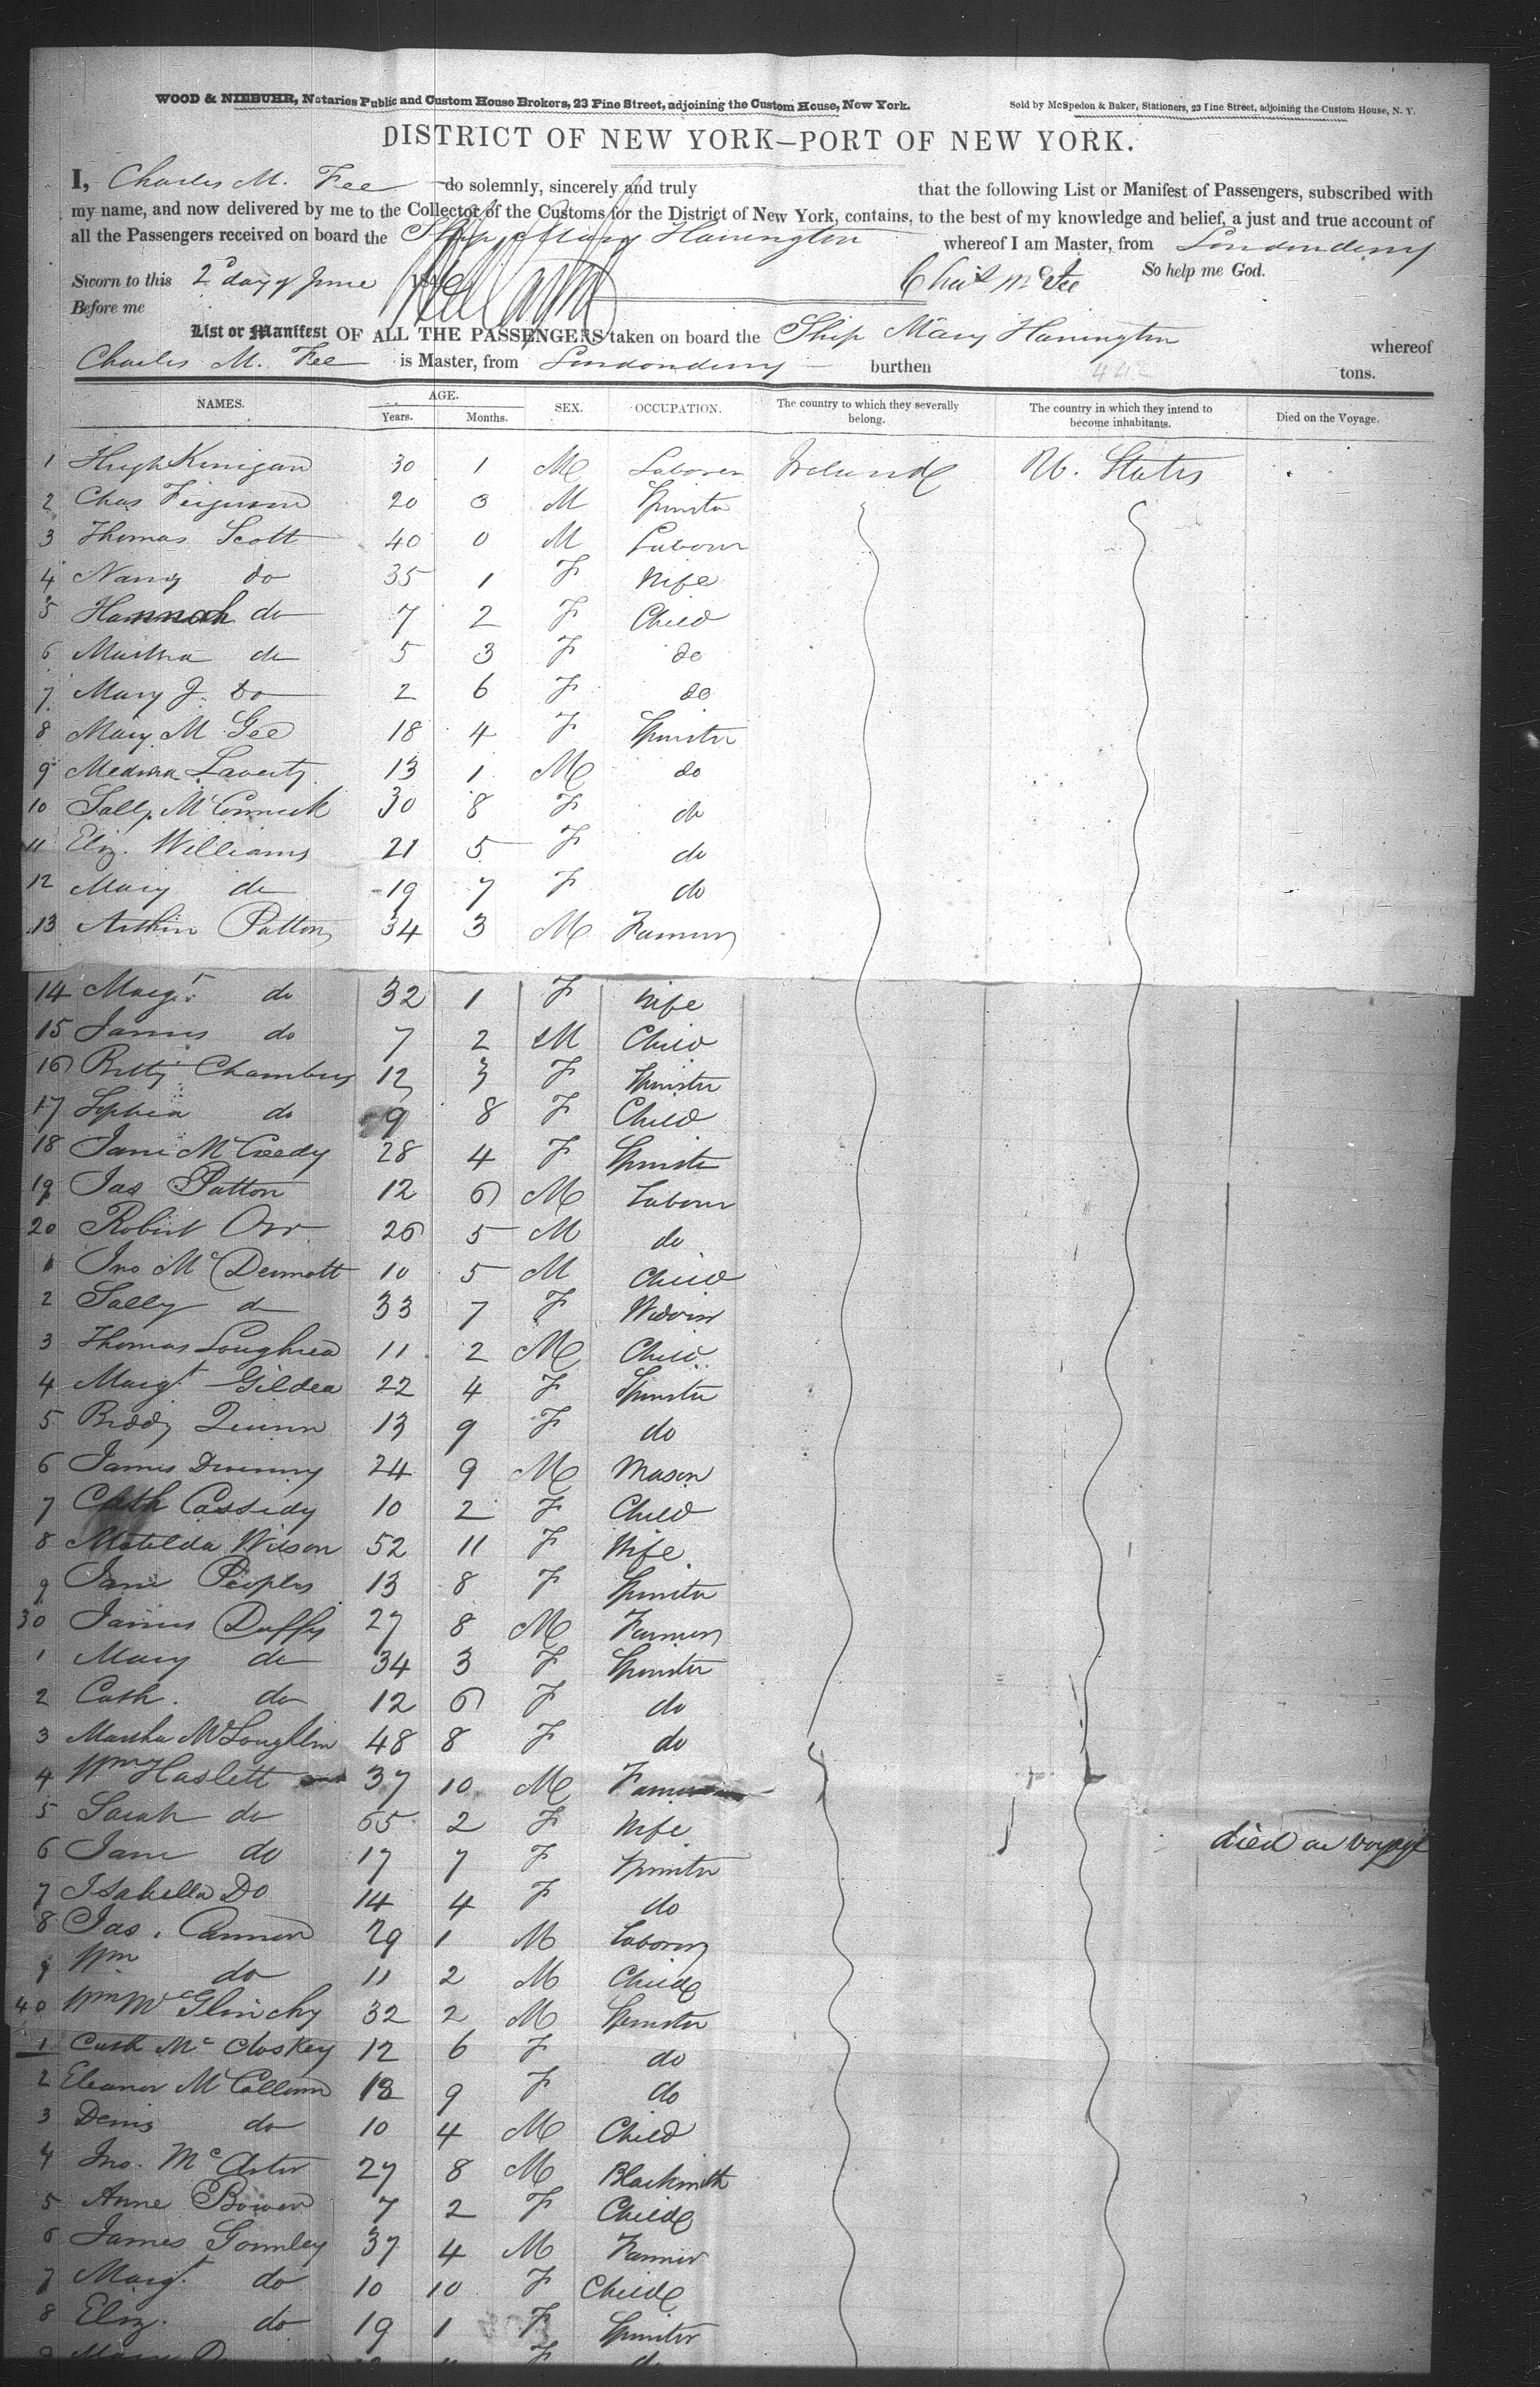 WOOD & NIEBUHR, Notaries Public and Custom House Brokers, 23 Pine Street, adjoining the Custom House, New York.
Sold by McSpedon & Baker, Stationers, 23 Pine Street, adjoining the Custom House, N. Y.
DISTRICT OF NEW YORK—PORT OF NEW YORK.
I, Charles M. Fee do solemnly, sincerely and truly that the following List or Manifest of Passengers, subscribed with
my name, and now delivered by me to the Collector of the Customs for the District of New York, contains, to the best of my knowledge and belief, a just and true account of
all the Passengers received on board the Ship Mary Harrington whereof I am Master, from Londonderry
Sworn to this 2d day of June Chas McFee So help me God.
Before me
List or Manifest OF ALL THE PASSENGERS taken on board the Ship Mary Harrington whereof
Charles M. Fee is Master, from Londonderry burthen 442 tons.
NAMES. AGE. Years. Months. SEX. OCCUPATION. The country to which they severally belong. The country in which they intend to become inhabitants. Died on the Voyage.
1 Hugh Kinigan 30 1 M Laborer Ireland U. States
2 Chas Ferguson 20 3 M Spinster
3 Thomas Scott 40 0 M Labourer
4 Nancy do 35 1 F Wife
5 Hannah do 7 2 F Child
6 Martha do 5 3 F do
7 Mary J. Do 2 6 F do
8 Mary M Gee 18 4 F Spinster
9 Laverty 13 1 M do
10 Sally McCormick 30 8 F do
11 Eliz. Williams 21 5 F do
12 Mary do 19 7 F do
13 Arthur Patton 34 3 M Farmer
14 Margt. do 32 1 F Wife
15 James do 7 2 M Child
16 Betty Chambers 12 3 F Spinster
17 Sophia do 9 8 F Child
18 Jane McCredy 28 4 F Spinster
19 Jas Patton 12 6 M Labour
20 Robert Orr 26 5 M do
1 Jno McDermott 10 5 M Child
2 Sally do 33 7 F Widow
3 Thomas Loughrea 11 2 M Child
4 Margt. Gildea 22 4 F Spinster
5 Biddy Quinn 13 9 F do
6 James Diveny 24 9 M Mason
7 Cath Cassidy 10 2 F Child
8 Matilda Wilson 52 11 F Wife
9 Jane Peoples 13 8 F Spinster
30 James Duffy 27 8 M Farmer
1 Mary do 34 3 F Spinster
2 Cath. do 12 6 F do
3 Martha McLoughlin 48 8 F do
4 Wm Haslett 37 10 M Farmer
5 Sarah do 65 2 F Wife died on voyage
6 Jane do 17 7 F Spinster
7 Isabella Do 14 4 F do
8 Jas. Cannon 29 1 M Laborer
9 Wm do 11 2 M Child
40 Wm McGlinchy 32 2 M Spinster
1 Cath McCloskey 12 6 F do
2 Eleanor McCallum 18 9 F do
3 Denis do 10 4 M Child
4 Jno. McArter 27 8 M Blacksmith
5 Anne Bower 7 2 F Child
6 James Gormley 37 4 M Farmer
7 Margt. do 10 10 F Child
8 Eliz. do 19 1 F Spinster